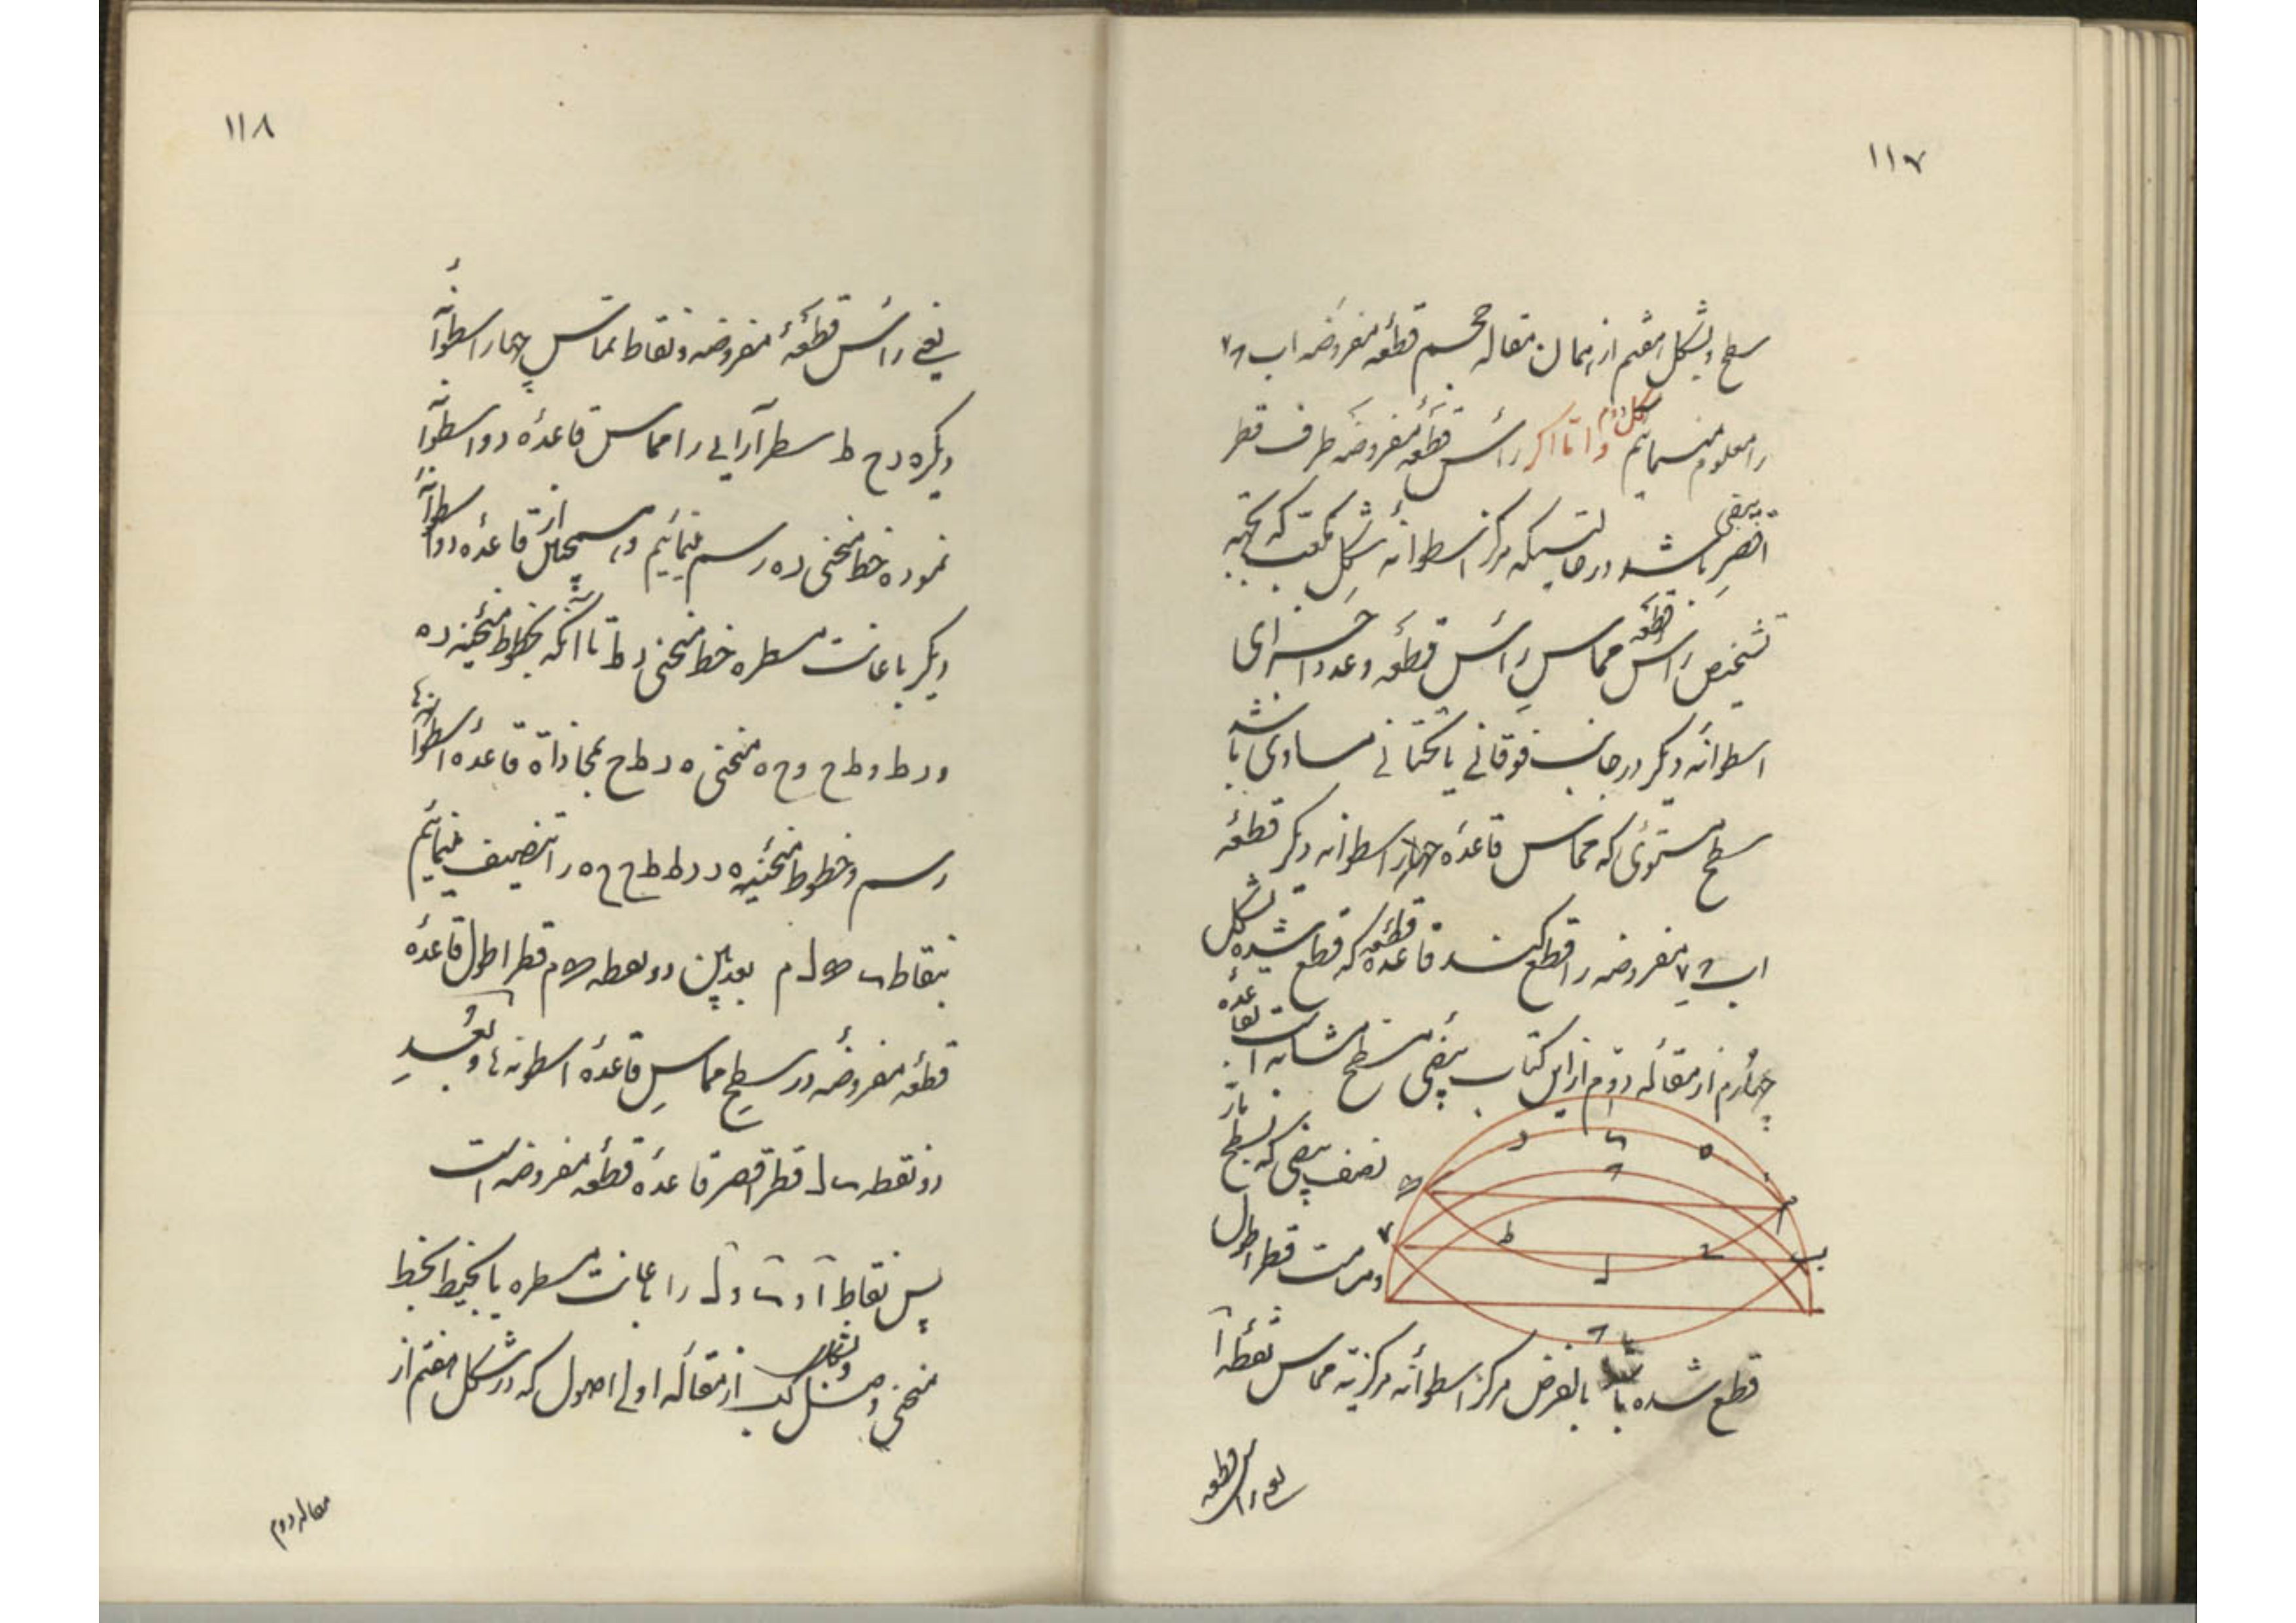 ۱۱۷
سطح و بشکل هفتم از همان مقاله حجم قطعه مفروضه اب
را معلوم مینمائیم شکل دوم و اما اگر رأس قطعهٔ مفروضه طرف قطر
اقصر بیضی باشد در حالتیکه مرکز اسطوانه شکل مکعب که بجهة
تشخیص رأس قطعه مماس رأس قطعه و عدد اجزای
اسطوانهٔ دیگر در جانب فوقانی یا تحتانی مساوی باشد
سطح مستوی که مماس قاعدهٔ چهار اسطوانه دیگر قطعهٔ
اب مفروضه را قطع کند قاعده قطعهٔ که قطع شده بشکل
چهارم از مقاله دوم از این کتاب بیضی مسطح مشابه است بقاعده
نصف بیضی که بسطح
و مرست قطر اطول
قطع شده با بالفرض مرکز اسطوانه مرکزیه مماس نقطه آ
یعنی رأس قطعه
۱۱۸
یعنی رأس قطعهٔ مفروضه و نقاط تماس چهار اسطوانهٔ
دیگر ه د ح ط سطرآرایی را مماس قاعدهٔ دو اسطوانه
نموده خط منحنی د ه رسم مینمائیم و همچنین از قاعدهٔ دو اسطوانهٔ
دیگر باعانت مسطره خط منحنی د ط تا آنکه بخطوط منحنیه د ه
و د ط و ط ح و ح ه منحنی ه د ط ح بمحاذاة قاعده اسطوانها
رسم و خطوط منحنیه ه د د ط ط ح ح ه را تنصیف مینمائیم
بنقاط ل م بعد بین دو نقطه م قطر اطول قاعدهٔ
قطعه مفروضه در سطح مماس قاعدهٔ اسطوانها و بعد
دو نقطه ل قطر اقصر قاعده قطعه مفروضه است
پس نقاط آ و و ل را باعانت مسطره یا بخیط بخط
منحنی وصل و بشکل از مقاله اولی اصول که در شکل هفتم از
مقاله دوم